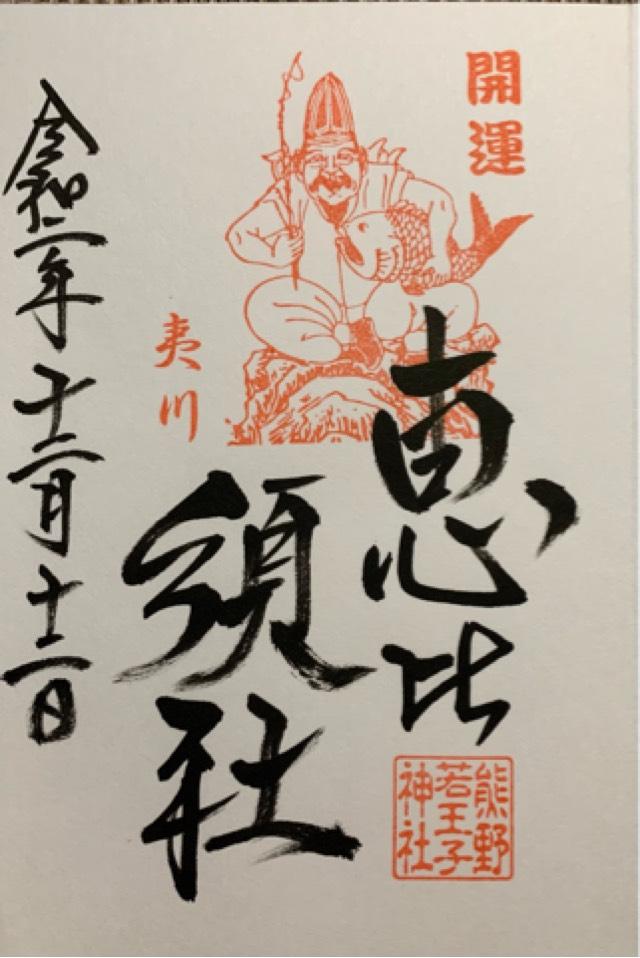 開運
恵比
須社
夷川
熊野
若王子
神社
令和二年十二月十二日